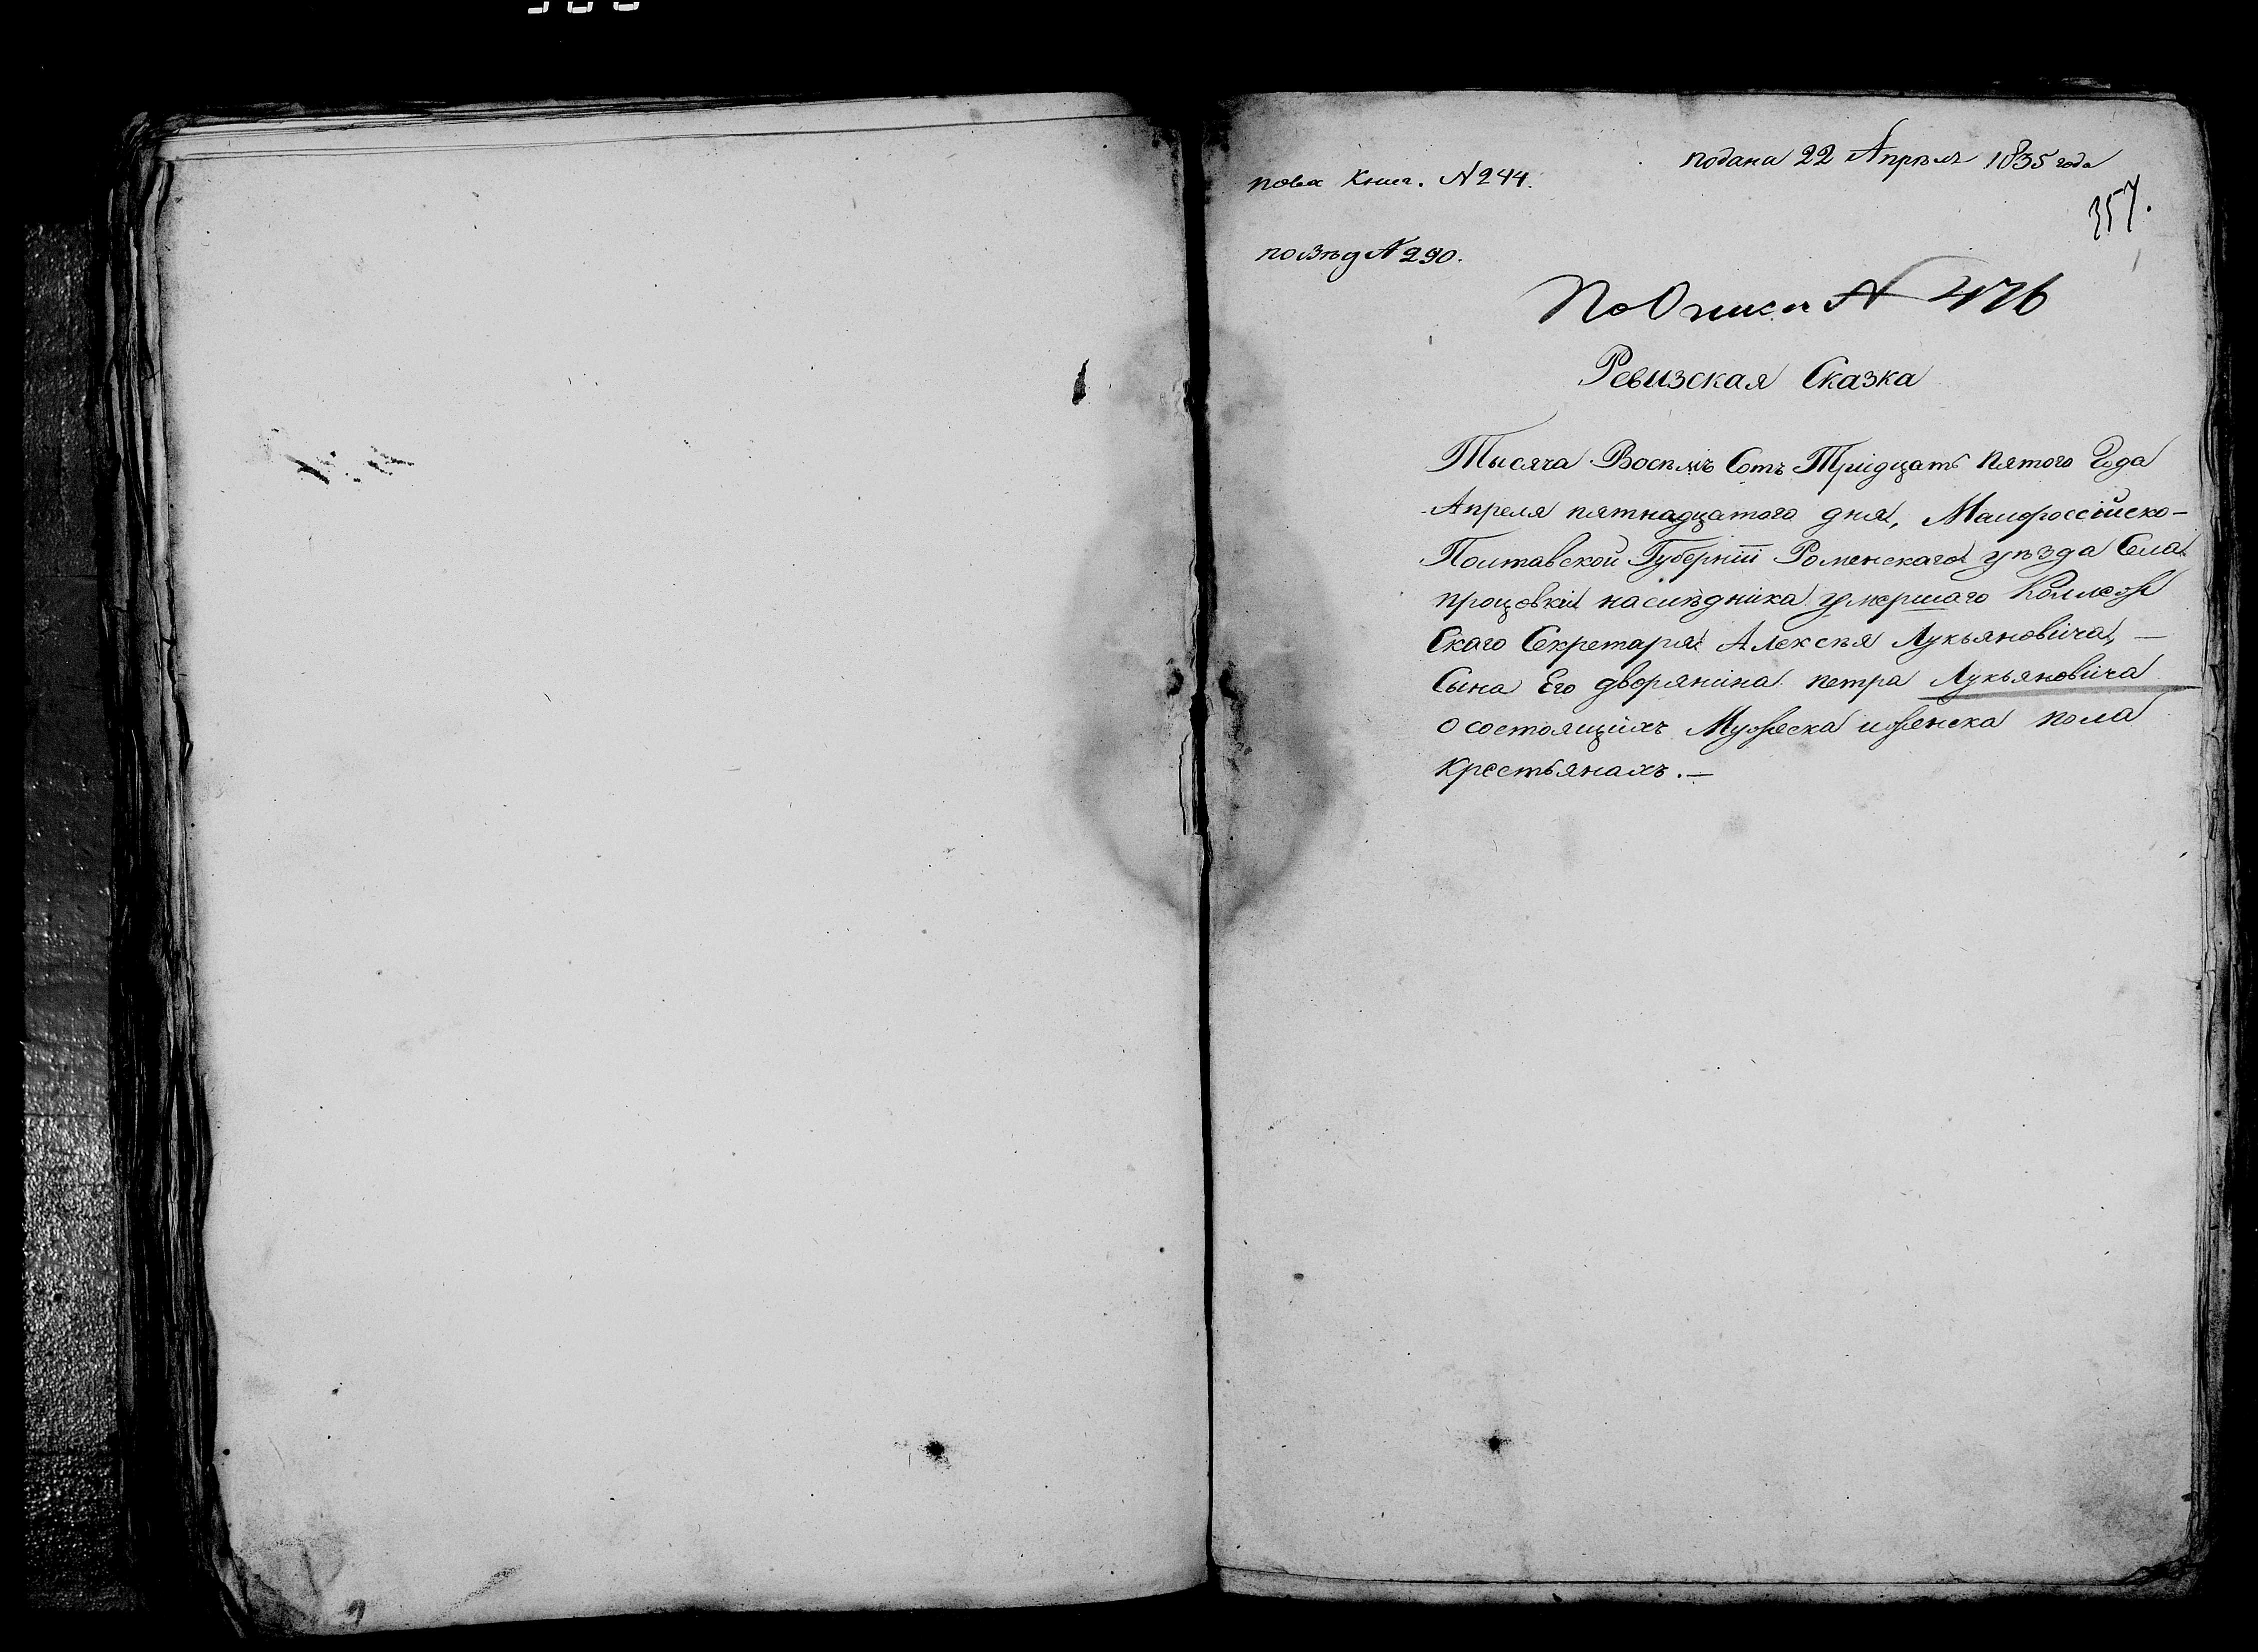 подана 22 Апрѣля 1835 года
Книг. N 244.
357.
поуѣзд N 290.
По Описи N 476
Ревизская Сказка
Тысяча Восемъ Сотъ Тридцать пятого Года
Апреля пятнадцатого дня, Малороссійско-
Полтавской Губерніи Роменского уѣзда Села
процовки наслѣдника умершаго Коллеж
Скаго Секретаря Алексѣя Лукьяновича, —
Сына Его дворянина петра Лукьяновича
о состоящихъ Мужеска иженска пола
крестьянахъ. —